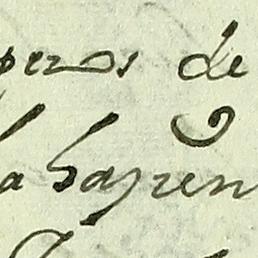 peros de
la hazien